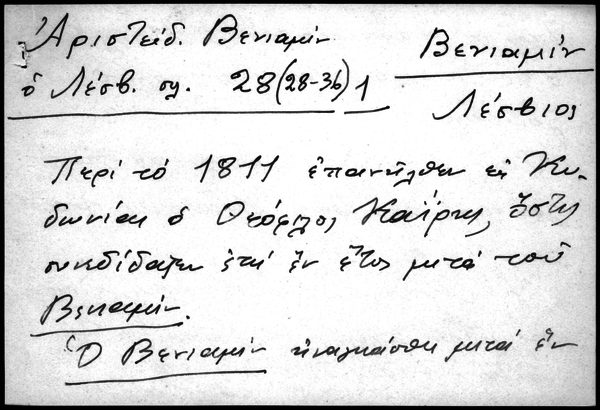 Ἀριστείδ. Βενιαμίν
Βενιαμίν
ὁ Λέσβ. σλ. 28 (28-36) 1
Λέσβιος
Περί τό 1811 ἐπανῆλθεν εἰς Κυ-
δωνίας ὁ Θεόφιλος Καΐρης, ὅστις
συνεδίδαξεν ἐπί ἓν ἔτος μετά τοῦ
Βενιαμίν.
Ὁ Βενιαμίν ἠναγκάσθη μετά ἓν